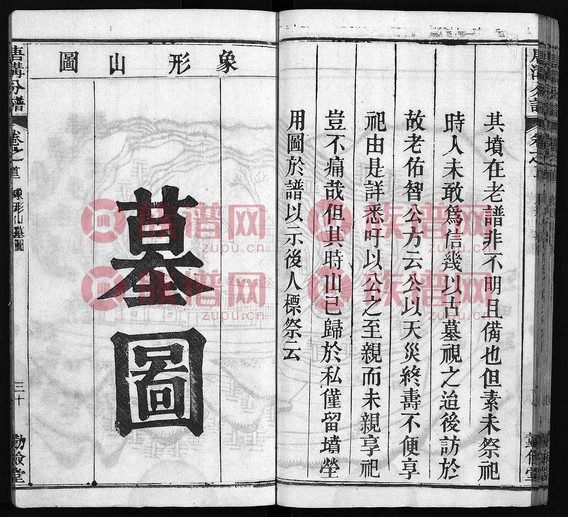 其墳在老譜非不明且備也但素未祭祀
時人未敢為信幾以古墓視之迨後訪於
故老佑智公方云公以天災終壽不便享
祀由是詳悉吁以公之至親而未親享祀
豈不痛哉但其時山已歸於私僅留墳塋
用圖於譜以示後人標祭云
象形山圖
墓圖
唐溝分譜
卷之首
象形山墓圖
三十
勤儉堂
族谱网
zupu.cn
族谱网
zupu.cn
族谱网
zupu.cn
族谱网
zupu.cn